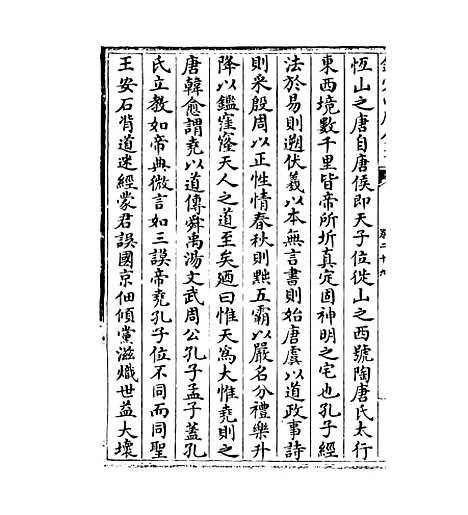 恆山之唐自唐侯即天子位徙山之西號陶唐氏太行
東西境數千里皆帝所圻真定固神明之宅也孔子經
法於易則遡伏羲以本無言書則始唐虞以道政事詩
則采殷周以正性情春秋則黜五霸以嚴名分禮樂升
降以鑑窪窿天人之道至矣廼曰惟天為大惟堯則之
唐韓愈謂堯以道傳舜禹湯文武周公孔子孟子蓋孔
氏立教如帝典微言如三謨帝堯孔子位不同而同聖
王安石背道迷經蒙君誤國京佃傾黨滋熾世益大壞